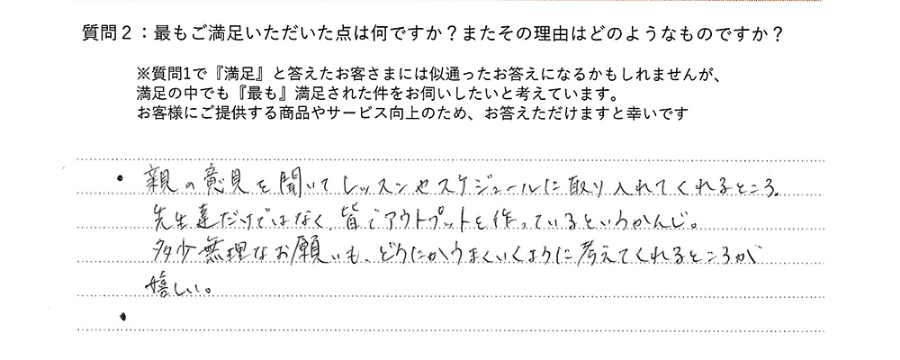 質問２：最もご満足いただいた点は何ですか？またその理由はどのようなものですか？
※質問1で『満足』と答えたお客さまには似通ったお答えになるかもしれませんが、
満足の中でも『最も』満足された件をお伺いしたいと考えています。
お客様にご提供する商品やサービス向上のため、お答えただけますと幸いです
・ 親の意見を聞いてレッスンやスケジュールに取り入れてくれるところ。
先生達だけではなく、皆でアウトプットを作っているというかんじ。
多少無理なお願いも、どうにかうまくいくように考えてくれるところが
嬉しい。
・